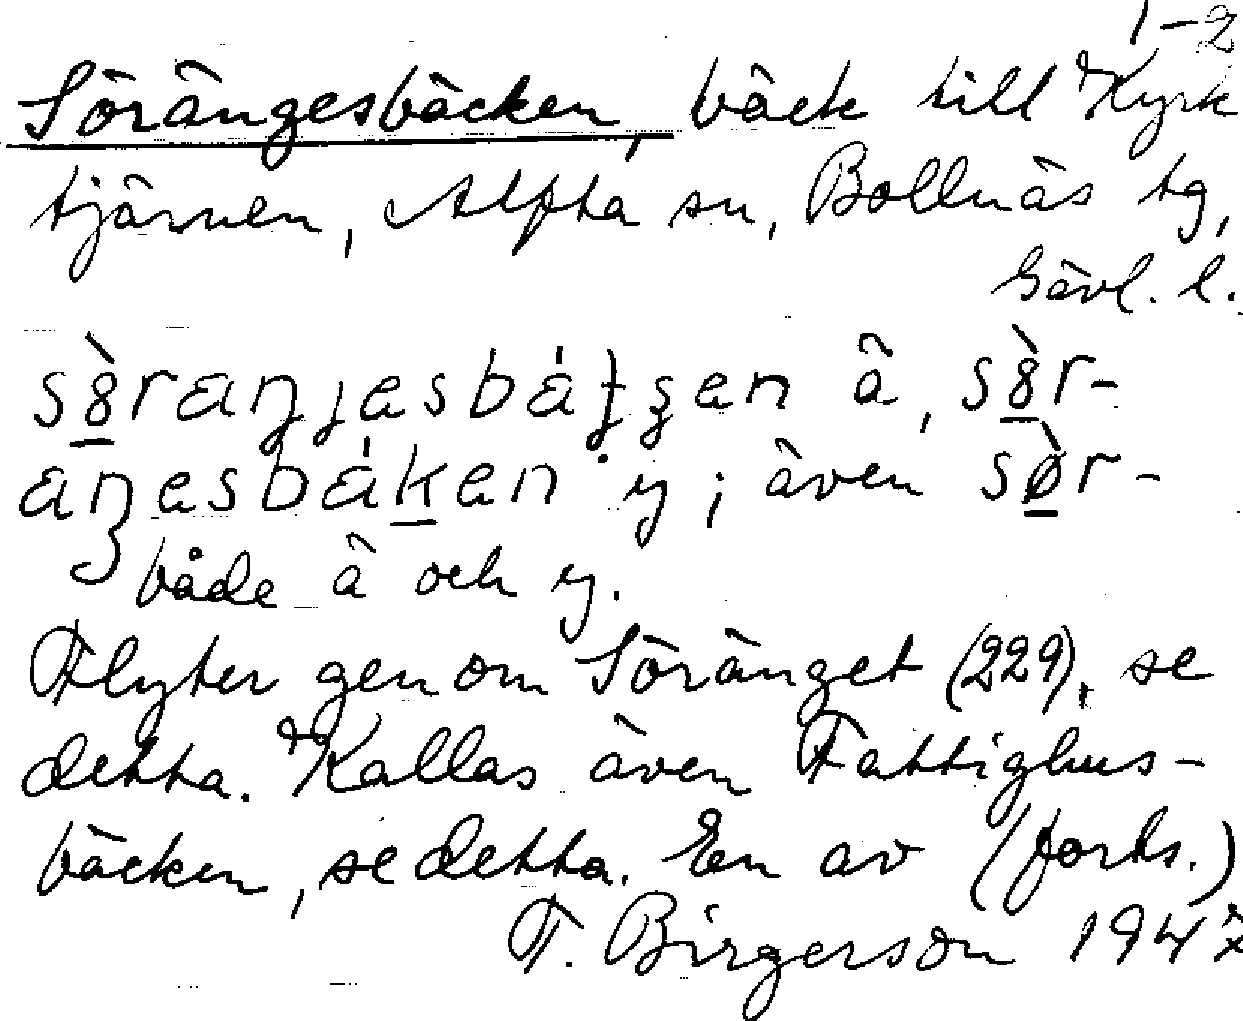 1-2
Sörängesbäcken, bäck till Kyrk
tjärnen, Alfta sn, Bollnäs tg,
Gävl. l.
ä,
y; även
både ä och y.
Flyter genom Söränget (229), se
detta. Kallas även Fattighus-
bäcken, se detta. En av (forts.)
F. Birgerson 1947